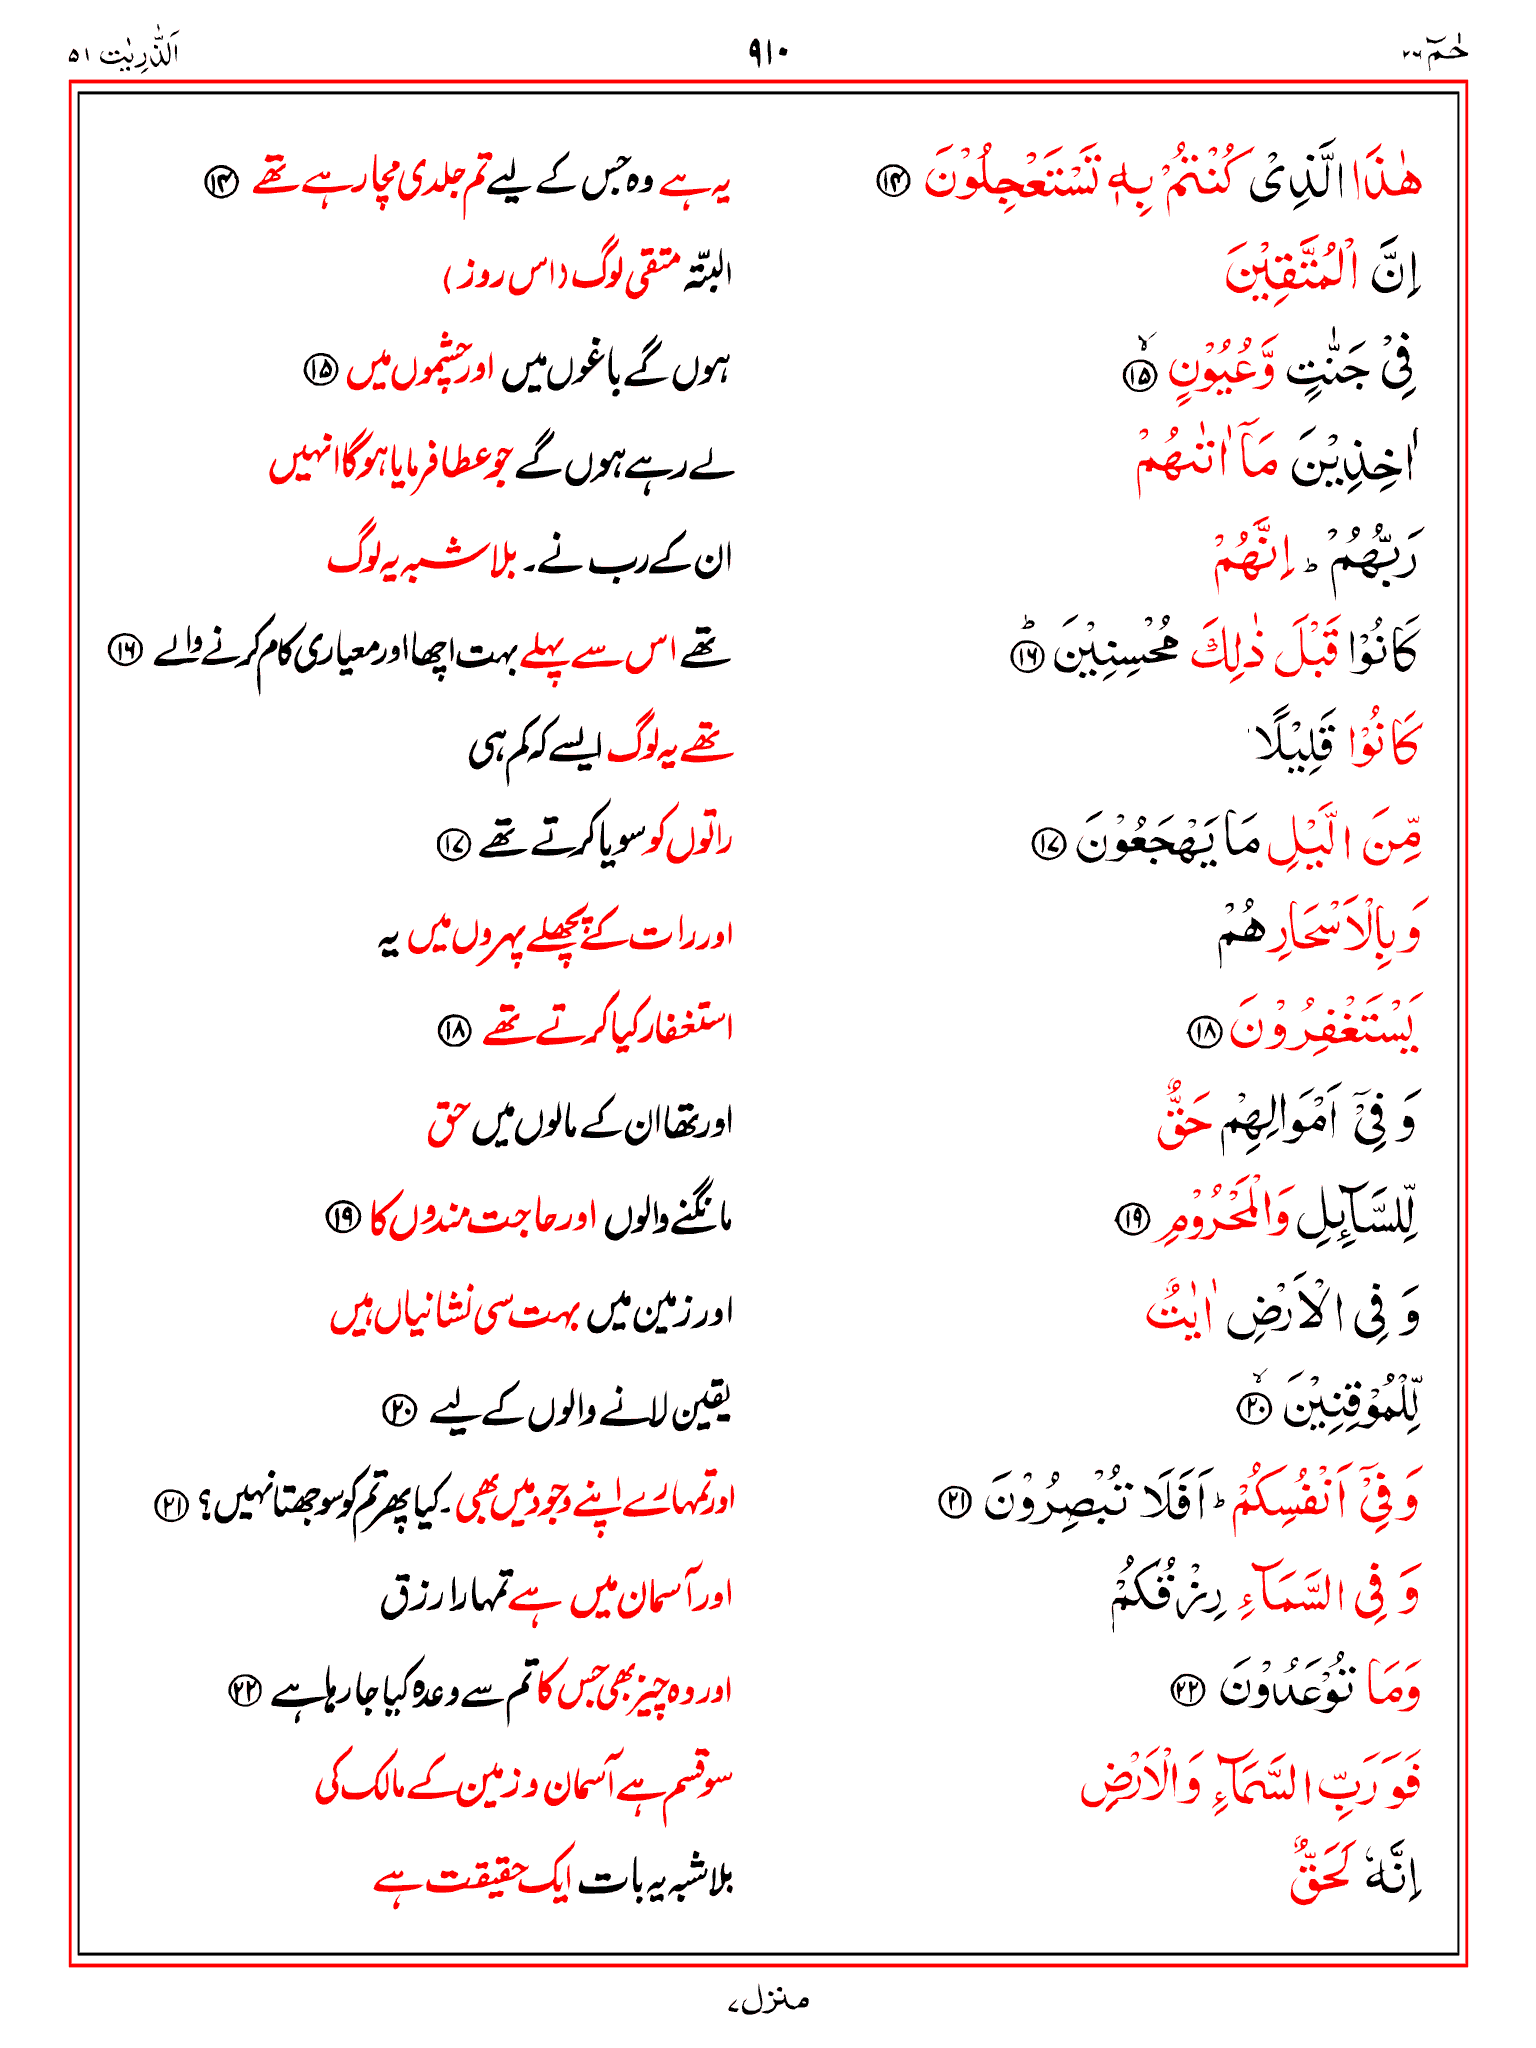 حٰمٓ ۲۶ ۹۱۰ اَلذّٰرِیٰت ۵۱
هٰذَا الَّذِیْ كُنْتُمْ بِهٖ تَسْتَعْجِلُوْنَ ⑭ یہ ہے وہ جس کے لیے تم جلدی مچا رہے تھے ⑭
اِنَّ الْمُتَّقِیْنَ البتّہ متقی لوگ (اس روز)
فِیْ جَنّٰتٍ وَّعُیُوْنٍ ⑮ۙ ہوں گے باغوں میں اور چشموں میں ⑮
اٰخِذِیْنَ مَاۤ اٰتٰىهُمْ لے رہے ہوں گے جو عطا فرمایا ہوگا انہیں
رَبُّهُمْ ؕ اِنَّهُمْ ان کے رب نے۔ بلا شبہ یہ لوگ
كَانُوْا قَبْلَ ذٰلِكَ مُحْسِنِیْنَ ⑯ؕ تھے اس سے پہلے بہت اچھا اور معیاری کام کرنے والے ⑯
كَانُوْا قَلِیْلًا تھے یہ لوگ ایسے کہ کم ہی
مِّنَ الَّیْلِ مَا یَهْجَعُوْنَ ⑰ راتوں کو سویا کرتے تھے ⑰
وَبِالْاَسْحَارِ هُمْ اور رات کے پچھلے پہروں میں یہ
یَسْتَغْفِرُوْنَ ⑱ استغفار کیا کرتے تھے ⑱
وَفِیْۤ اَمْوَالِهِمْ حَقٌّ اور تھا ان کے مالوں میں حق
لِّلسَّآىِٕلِ وَالْمَحْرُوْمِ ⑲ مانگنے والوں اور حاجت مندوں کا ⑲
وَفِی الْاَرْضِ اٰیٰتٌ اور زمین میں بہت سی نشانیاں ہیں
لِّلْمُوْقِنِیْنَ ⑳ۙ یقین لانے والوں کے لیے ⑳
وَفِیْۤ اَنْفُسِكُمْ ؕ اَفَلَا تُبْصِرُوْنَ ㉑ اور تمہارے اپنے وجود میں بھی۔ کیا پھر تم کو سوجھتا نہیں؟ ㉑
وَفِی السَّمَآءِ رِزْقُكُمْ اور آسمان میں ہے تمہارا رزق
وَمَا تُوْعَدُوْنَ ㉒ اور وہ چیز بھی جس کا تم سے وعدہ کیا جا رہا ہے ㉒
فَوَرَبِّ السَّمَآءِ وَالْاَرْضِ سو قسم ہے آسمان و زمین کے مالک کی
اِنَّهٗ لَحَقٌّ بلا شبہ یہ بات ایک حقیقت ہے
منزل ۷